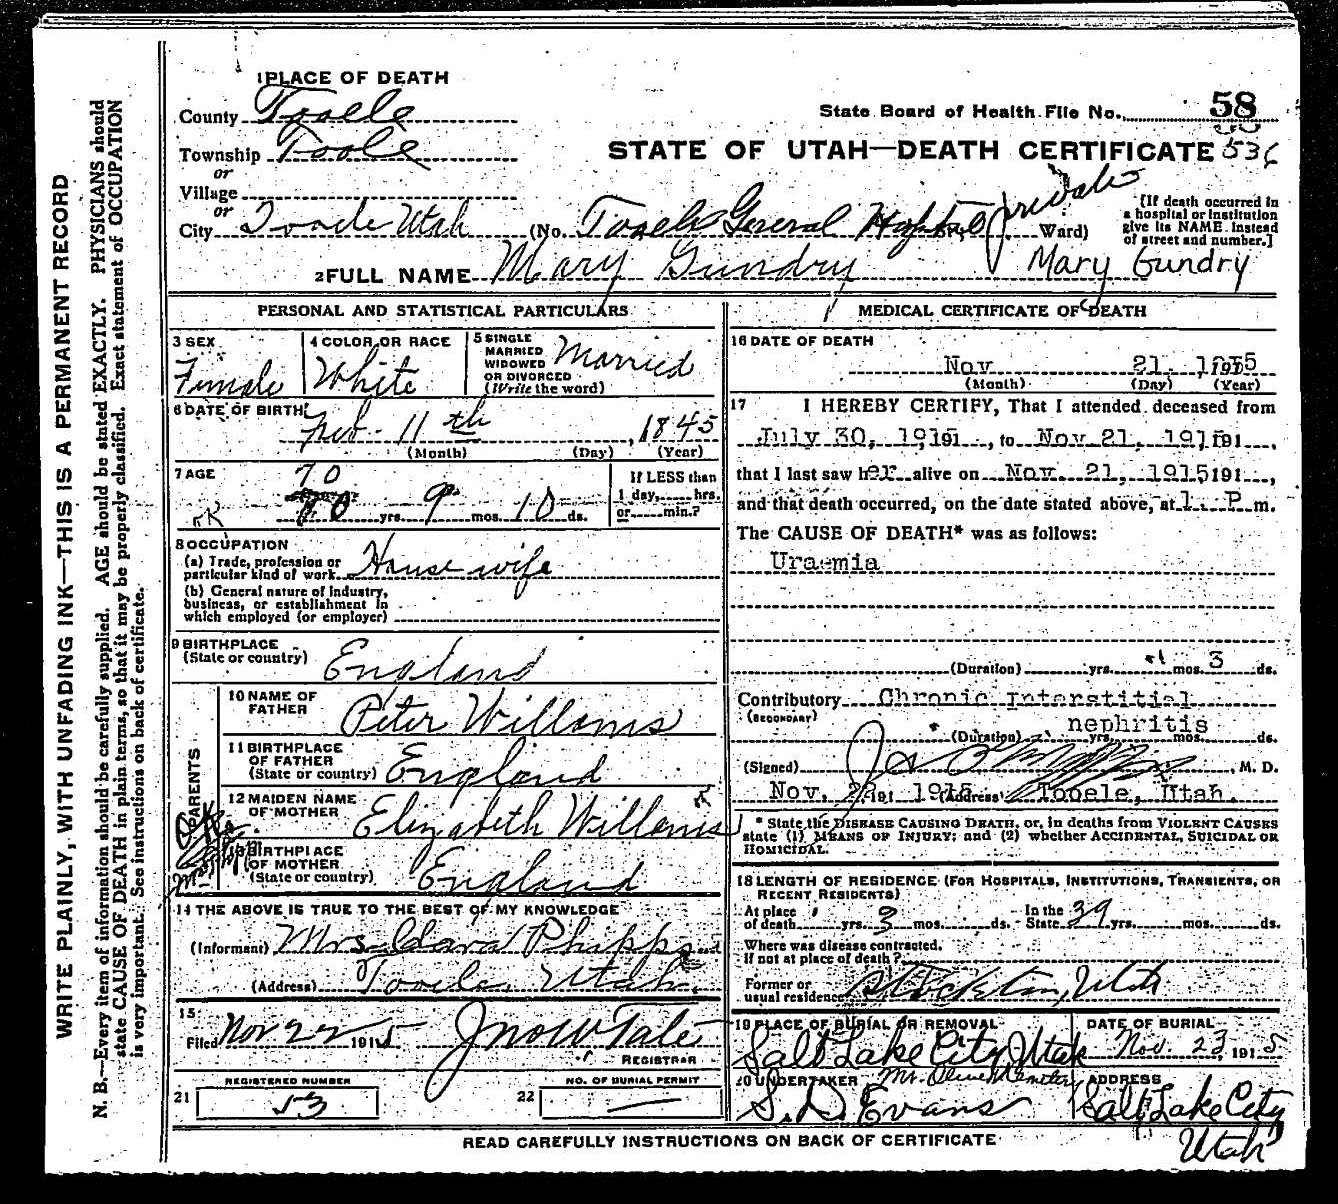 WRITE PLAINLY, WITH UNFADING INK—THIS IS A PERMANENT RECORD
N. B.—Every item of information should be carefully supplied. AGE should be stated EXACTLY. PHYSICIANS should
state CAUSE OF DEATH in plain terms, so that it may be properly classified. Exact statement of OCCUPATION
is very important. See instructions on back of certificate.
1 PLACE OF DEATH
County Tooele
Township Tooele
or
Village
or
City Tooele Utah (No. Tooele General Hospital private Ward)
[If death occurred in
a hospital or institution
give its NAME instead
of street and number.]
State Board of Health File No. 58
STATE OF UTAH—DEATH CERTIFICATE 536
2 FULL NAME Mary Gundry Mary Gundry
PERSONAL AND STATISTICAL PARTICULARS
3 SEX
Female
4 COLOR OR RACE
White
5 SINGLE
MARRIED
WIDOWED
OR DIVORCED
(Write the word)
Married
6 DATE OF BIRTH
Feb 11th, 1845
(Month) (Day) (Year)
7 AGE
70
70 yrs. 9 mos. 10 ds.
If LESS than
1 day, hrs.
or min.?
8 OCCUPATION
(a) Trade, profession or
particular kind of work House wife
(b) General nature of industry,
business, or establishment in
which employed (or employer)
9 BIRTHPLACE
(State or country) England
PARENTS
10 NAME OF
FATHER Peter Willams
11 BIRTHPLACE
OF FATHER
(State or country) England
12 MAIDEN NAME
OF MOTHER Elizabeth Willams
13 BIRTHPLACE
OF MOTHER
(State or country) England
14 THE ABOVE IS TRUE TO THE BEST OF MY KNOWLEDGE
(Informant) Mrs Clara Phipps
(Address) Tooele, Utah.
15
Filed Nov 22 1915 Jno W Tate
REGISTRAR
21 REGISTERED NUMBER
53
22 NO. OF BURIAL PERMIT
MEDICAL CERTIFICATE OF DEATH
16 DATE OF DEATH
Nov 21. 1915
(Month) (Day) (Year)
17 I HEREBY CERTIFY, That I attended deceased from
July 30, 1915 191, to Nov 21, 1915 191,
that I last saw her alive on Nov. 21, 1915 191,
and that death occurred, on the date stated above, at 1. P m.
The CAUSE OF DEATH* was as follows:
Uraemia
(Duration) yrs. mos. 3 ds.
Contributory Chronic interstitial
(SECONDARY) nephritis
(Duration) yrs. mos. ds.
(Signed) , M. D.
Nov. 22 191 1915 (Address) Tooele, Utah.
* State the DISEASE CAUSING DEATH, or, in deaths from VIOLENT CAUSES
state (1) MEANS OF INJURY; and (2) whether ACCIDENTAL, SUICIDAL OR
HOMICIDAL.
18 LENGTH OF RESIDENCE (FOR HOSPITALS, INSTITUTIONS, TRANSIENTS, OR
RECENT RESIDENTS)
At place
of death yrs. 3 mos. ds. In the
State 39 yrs. mos. ds.
Where was disease contracted,
If not at place of death?
Former or
usual residence Stockton, Utah
19 PLACE OF BURIAL OR REMOVAL
Salt Lake City Utah
Mt. Olivet Cemetery
DATE OF BURIAL
Nov. 23 1915
20 UNDERTAKER
S. D. Evans
ADDRESS
Salt Lake City
Utah
READ CAREFULLY INSTRUCTIONS ON BACK OF CERTIFICATE